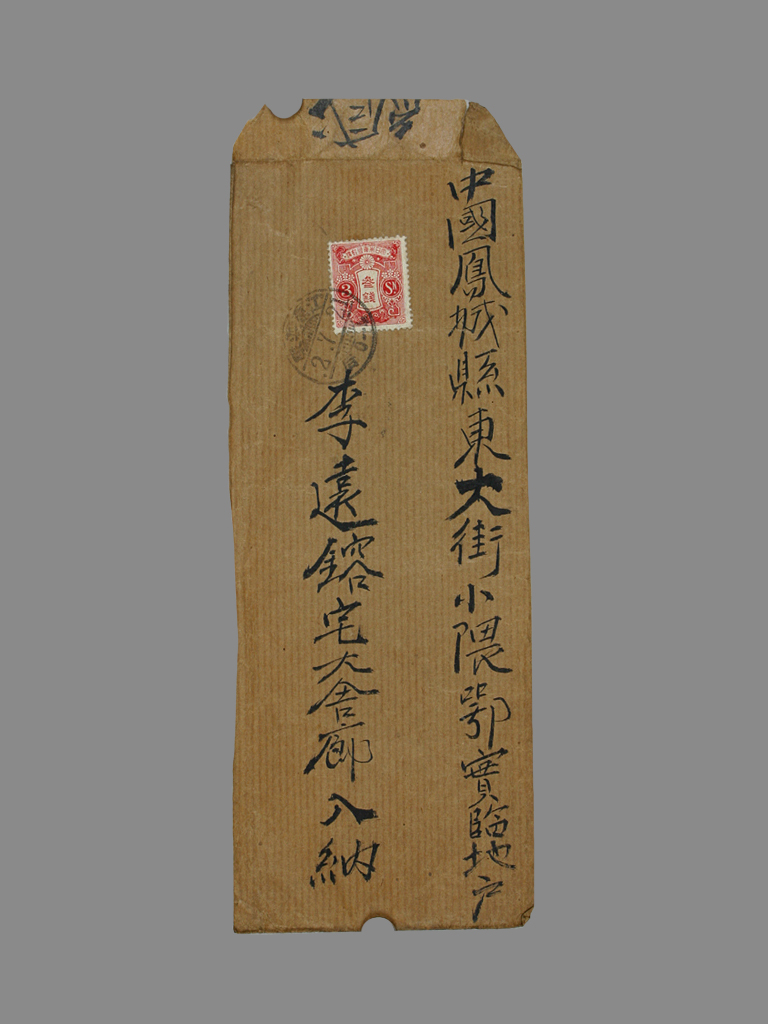 中國鳳城縣東大街小隈鄂實臨地戶
李遠鎔宅大舍廊入納
叁錢
3 Sn